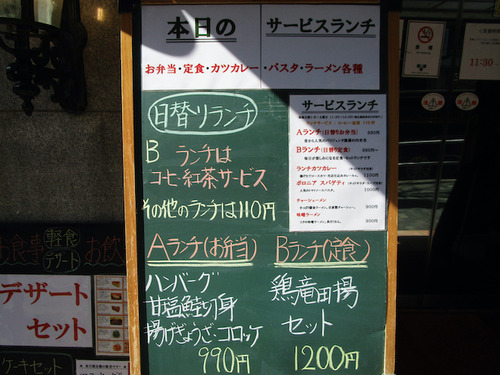 本日の サービスランチ
お弁当・定食・カツカレー・パスタ・ラーメン各種
日替りランチ
B ランチは
コーヒ・紅茶サービス
その他のランチは110円
サービスランチ
Aランチ(日替りお弁当) 990円
Bランチ(日替り定食)
ランチカツカレー
1100円
ボロニア スパゲティ
1000円
チャーシューメン
900円
味噌ラーメン
900円
Aランチ(お弁当)
ハンバーグ
甘塩鮭切り身
揚げぎょうざ・コロッケ
990円
Bランチ(定食)
鶏竜田揚
セット
1200円
11:30
食事
軽食
デザート
お飲
デザート
セット
ケーキセット